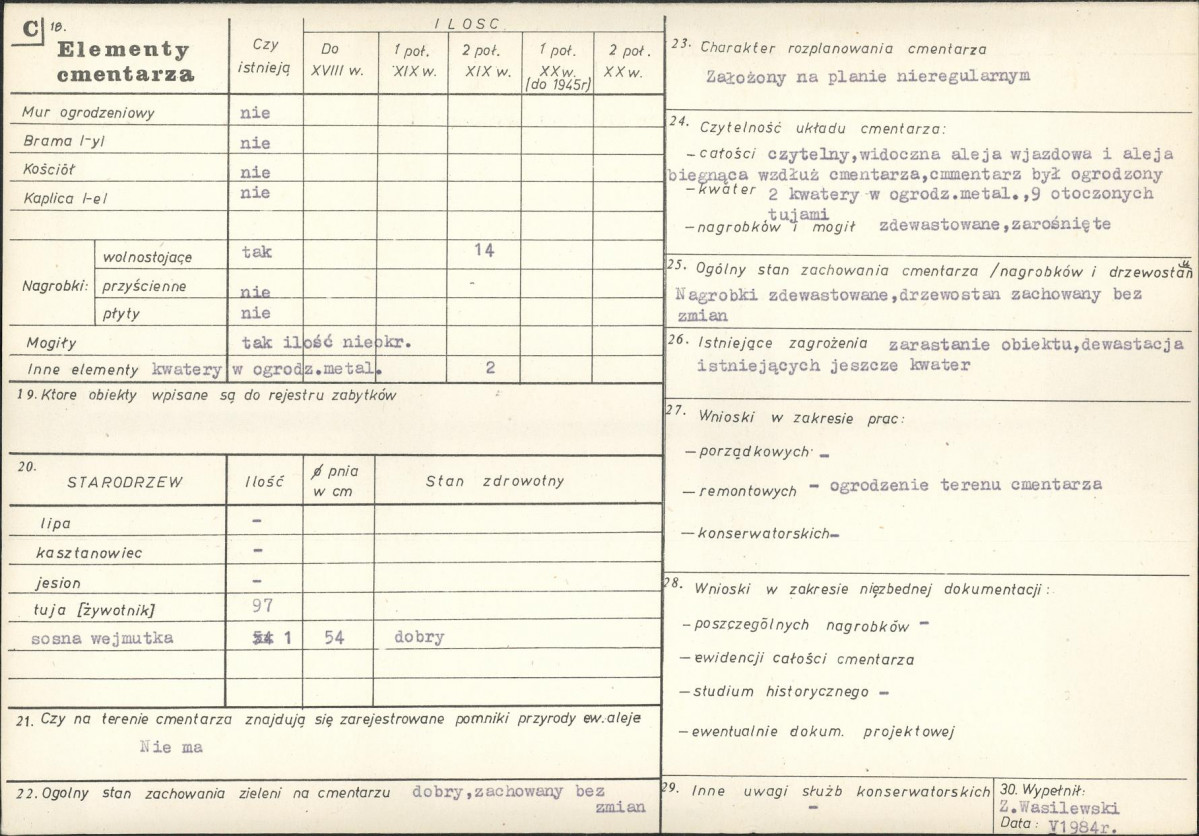 C 18.
Elementy
cmentarza
Czy
istnieją
ILOSC
Do
XVIII w.
1 poł.
XIX w.
2 poł.
XIX w.
1 poł.
XX w.
(do 1945r)
2 poł.
XX w.
Mur ogrodzeniowy nie
Brama /-y/ nie
Kościół nie
Kaplica /-e/ nie
Nagrobki:
wolnostojące tak 14
przyścienne nie
płyty nie
Mogiły tak ilość nieokr.
Inne elementy kwatery w ogrodz.metal. 2
19. Ktore obiekty wpisane są do rejestru zabytków
20.
STARODRZEW Ilość ø pnia
w cm Stan zdrowotny
lipa –
kasztanowiec –
jesion –
tuja [żywotnik] 97
sosna wejmutka 54 1 54 dobry
21. Czy na terenie cmentarza znajdują się zarejestrowane pomniki przyrody ew. aleje
Nie ma
22. Ogolny stan zachowania zieleni na cmentarzu dobry,zachowany bez
zmian
23. Charakter rozplanowania cmentarza
Założony na planie nieregularnym
24. Czytelność układu cmentarza:
– całości czytelny,widoczna aleja wjazdowa i aleja
biegnąca wzdłuż cmentarza,cmmentarz był ogrodzony
– kwater 2 kwatery w ogrodz.metal.,9 otoczonych
tujami
– nagrobków i mogił zdewastowane,zarośnięte
25. Ogólny stan zachowania cmentarza /nagrobków i drzewostan
Nagrobki zdewastowane,drzewostan zachowany bez
zmian
26. Istniejące zagrożenia zarastanie obiektu,dewastacja
istniejących jeszcze kwater
27. Wnioski w zakresie prac:
– porządkowych –
– remontowych – ogrodzenie terenu cmentarza
– konserwatorskich –
28. Wnioski w zakresie nięzbednej dokumentacji:
– poszczególnych nagrobków –
– ewidencji całości cmentarza
– studium historycznego –
– ewentualnie dokum. projektowej
29. Inne uwagi służb konserwatorskich
–
30. Wypełnił:
Z.Wasilewski
Data: V1984r.